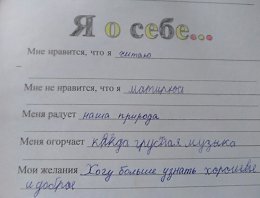 Я о себе...
Мне нравится, что я читаю
Мне не нравится, что я матирюся
Меня радует наша природа
Меня огорчает когда грустная музыка
Мои желания Хочу больше узнать хорошее
и доброе